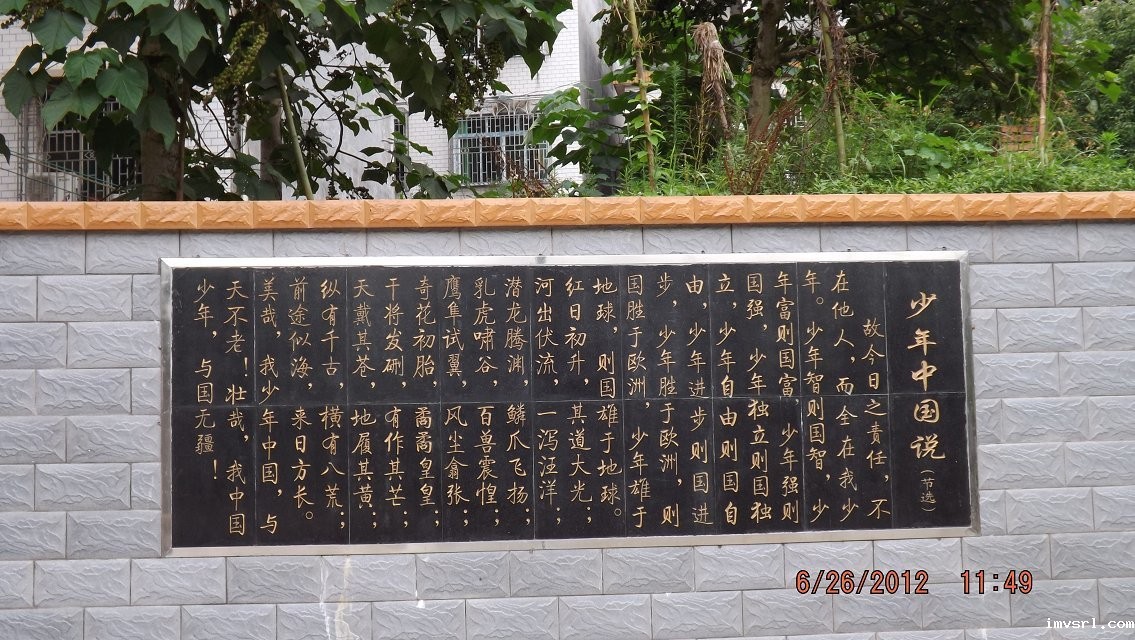 少年中国说（节选）
故今日之责任，不
在他人，而全在我少
年。少年智则国智，少
年富则国富，少年强则
国强，少年独立则国独
立，少年自由则国自
由，少年进步则国进
步，少年胜于欧洲，则
国胜于欧洲，少年雄于
地球，则国雄于地球。
红日初升，其道大光；
河出伏流，一泻汪洋；
潜龙腾渊，鳞爪飞扬；
乳虎啸谷，百兽震惶；
鹰隼试翼，风尘翕张；
奇花初胎，矞矞皇皇；
干将发硎，有作其芒；
天戴其苍，地履其黄；
纵有千古，横有八荒；
前途似海，来日方长。
美哉，我少年中国，与
天不老！壮哉，我中国
少年，与国无疆！
6/26/2012 11:49
imvsrl.com